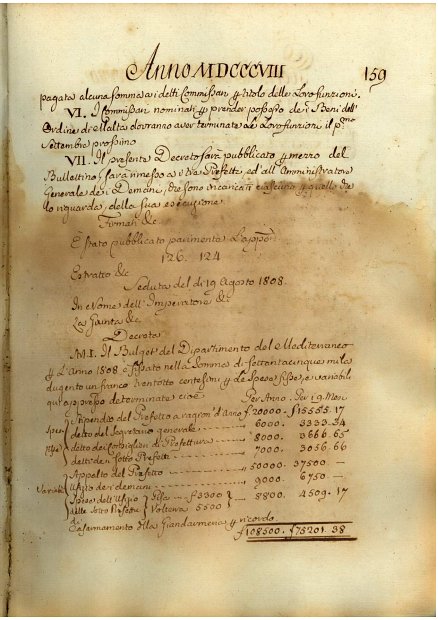 Anno MDCCCVIII
159
pagata alcuna somma ai detti Commissari p titolo delle Loro funzioni.
VI. I Commissari nominati p prender possesso dei Beni dell'
Ordine di Malta dovranno aver terminate le Loro funzioni il p.mo
Settembre prossimo
VII. Il presente Decreto sarà pubblicato p mezzo del
Bullettino, sarà inmesso ai tre Prefetti, ed all'Amministratore
Generale dei Demani, che sono incaricati ciascuno p quello che
lo riguarda, della sua esecuzione
Firmati &c
È stato pubblicato parimente l'appo
126. 124
Estratto &c
Seduta del dì 19 Agosto 1808.
In Nome dell'Imperatore &c
La Giunta &c
Decreta
Il Budget del Dipartimento del Mediterraneo
p L'Anno 1808 è fissato nella Somma di Settantacinque mila
dugento un franco trentotto centesimi p le Spese fisse, e variabili
qui appresso determinate cioè
Per Anno. Per 9. Mesi
Stipendio del Prefetto a ragion d'Anno f 20000. f 15555. 17
Spese fisse
detto del Segretario generale 6000. 3333. 34
detto dei Consiglieri di Prefettura 8000. 3666. 65
detti dei Sotto Prefetti 7000. 3056. 66
Variabili
Appalto del Prefetto 50000 37500 —
Uffizio dei demani 9000 6750 —
Spese dell'Uffizio delle Sotto Prefetture
Pisa f 3300
Volterra 5500
8800 4509. 17
Casarmamento della Gendarmeria p ricordo.
f 108500. f 75201. 38